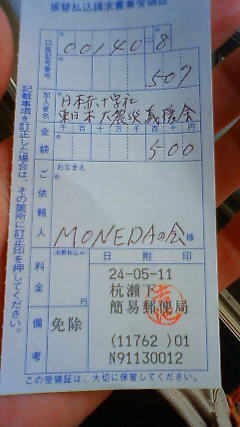 振替払込請求書兼受領証
口座記号番号
00140-8
507
加入者名
日本赤十字社
東日本大震災義援金
金額
千百十万千百十円
500
おなまえ
ご依頼人
MONEDAの会様
料金
消費税込み
円
日附印
24-05-11
杭瀬下
簡易郵便局
備考
免除
(11762)01
N91130012
記載事項を訂正した場合は、その箇所に訂正印を押してください。
この受領証は、大切に保管してください。